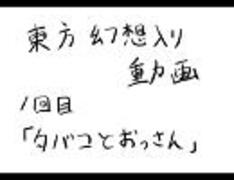 東方幻想入り
動画
1回目
「タバコとおっさん」